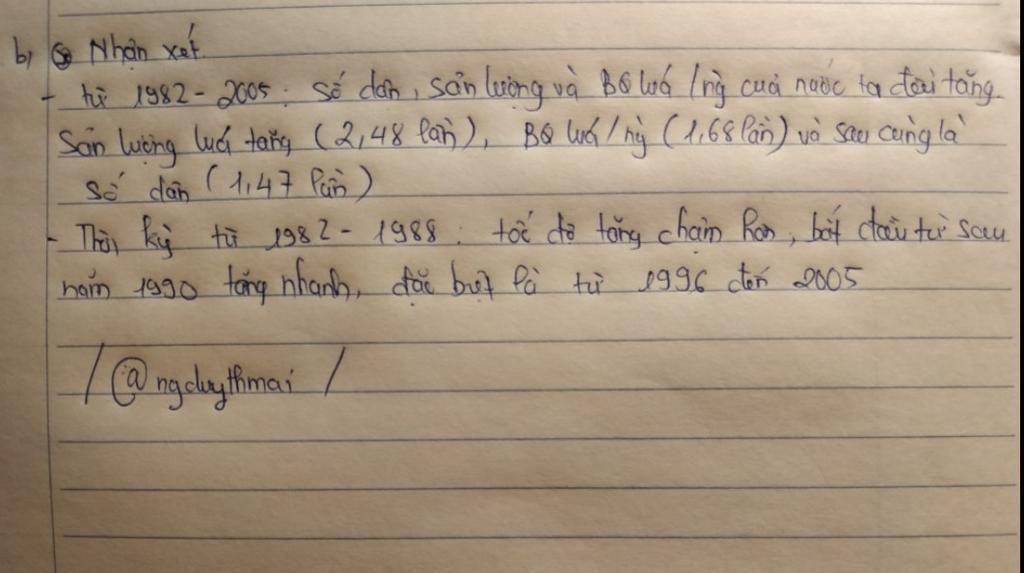 b, Nhận xét.
- từ 1982 - 2005: Số dân, sản lượng và BQ luá /ng` cuả nước ta đều tăng.
Sản lượng luá tăng (2,48 lần), BQ luá / ng` (1,68 lần) và sau cùng là
số dân (1,47 lần)
- Thời kỳ từ 1982 - 1988: tốc độ tăng chậm hơn, bắt đầu từ sau
năm 1990 tăng nhanh, đặc biệt là từ 1996 đến 2005
/ @ngduythmai /